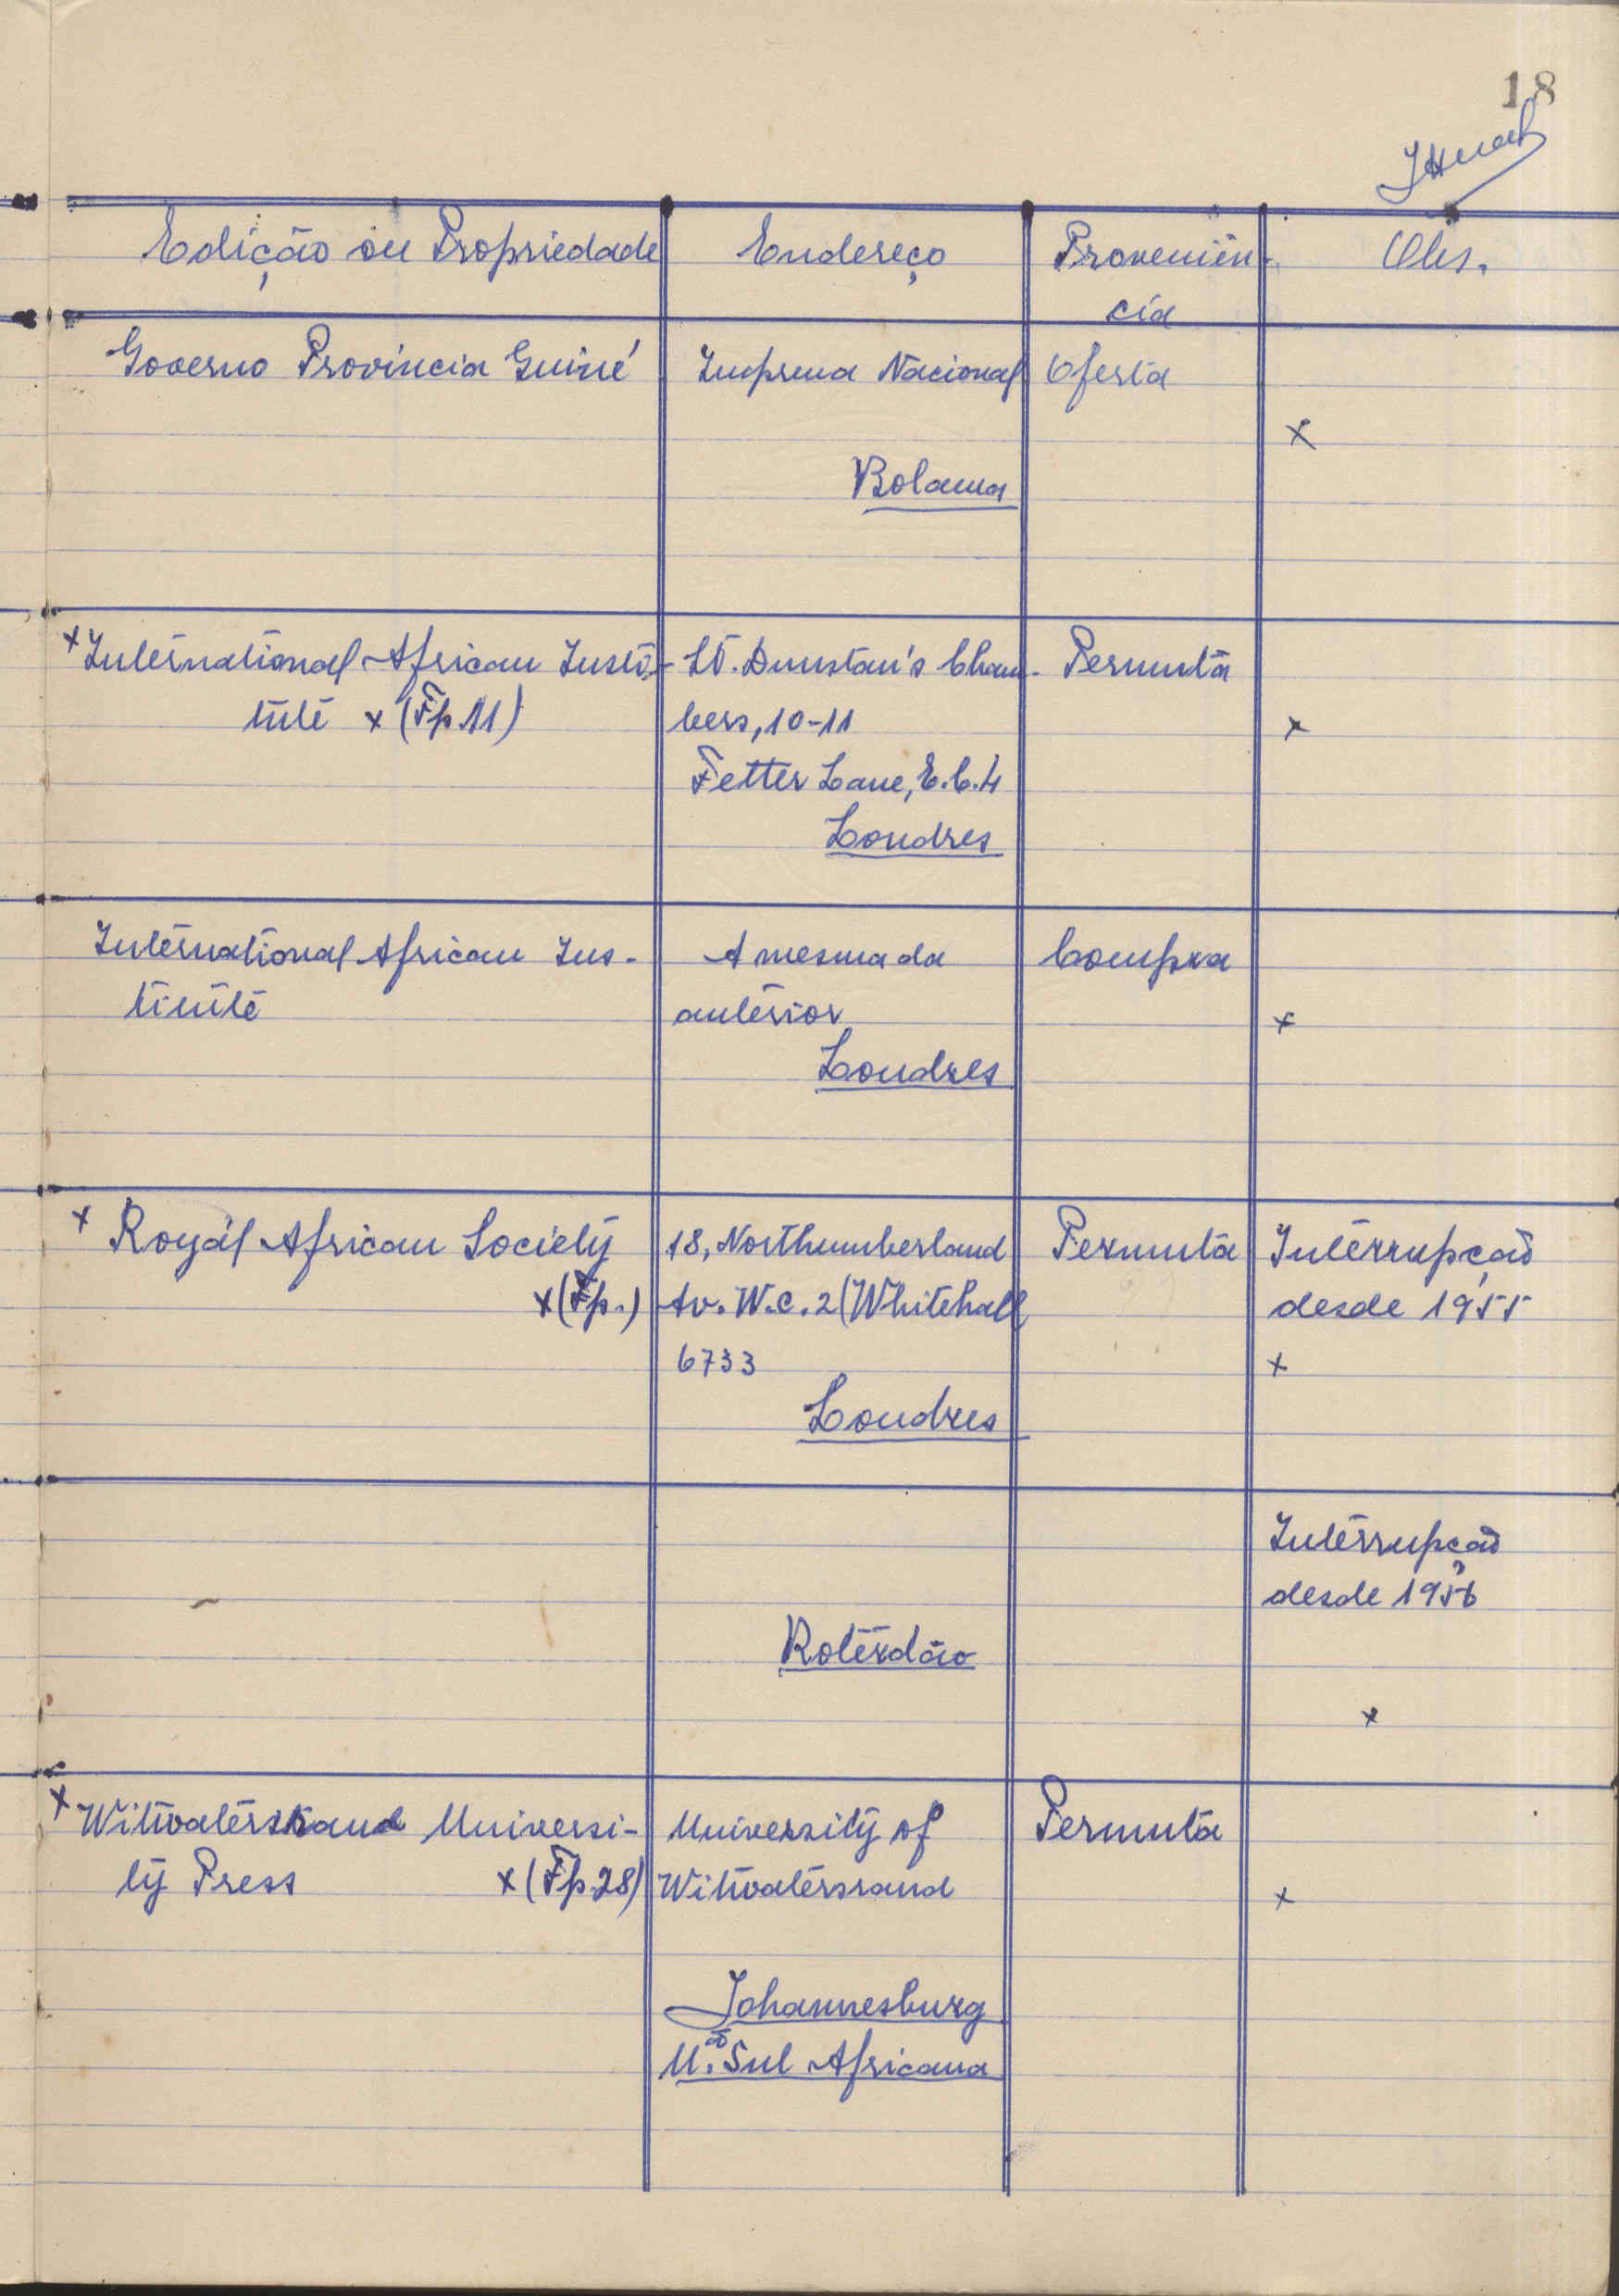 18
Edição ou Propriedade Endereço Proveniên- Obs.
cia
Governo Província Guiné Imprensa Nacional Oferta
x
Bolama
x International African Insti- St. Dunstan's Cham- Permuta
tute x (Fp 11) bers, 10-11 x
Fetter Lane, E.C.4
Londres
International African Ins- A mesma da Compra
titute anterior x
Londres
x Royal African Society 18, Northumberland Permuta Interrupção
x (Fp.) Av. W.C.2 (Whitehall desde 1955
6733 x
Londres
Interrupção
desde 1956
Roterdão
x
x Witwatersrand Universi- University of Permuta
ty Press x (Fp 28) Witwatersrand x
Johannesburg
U. Sul Africana